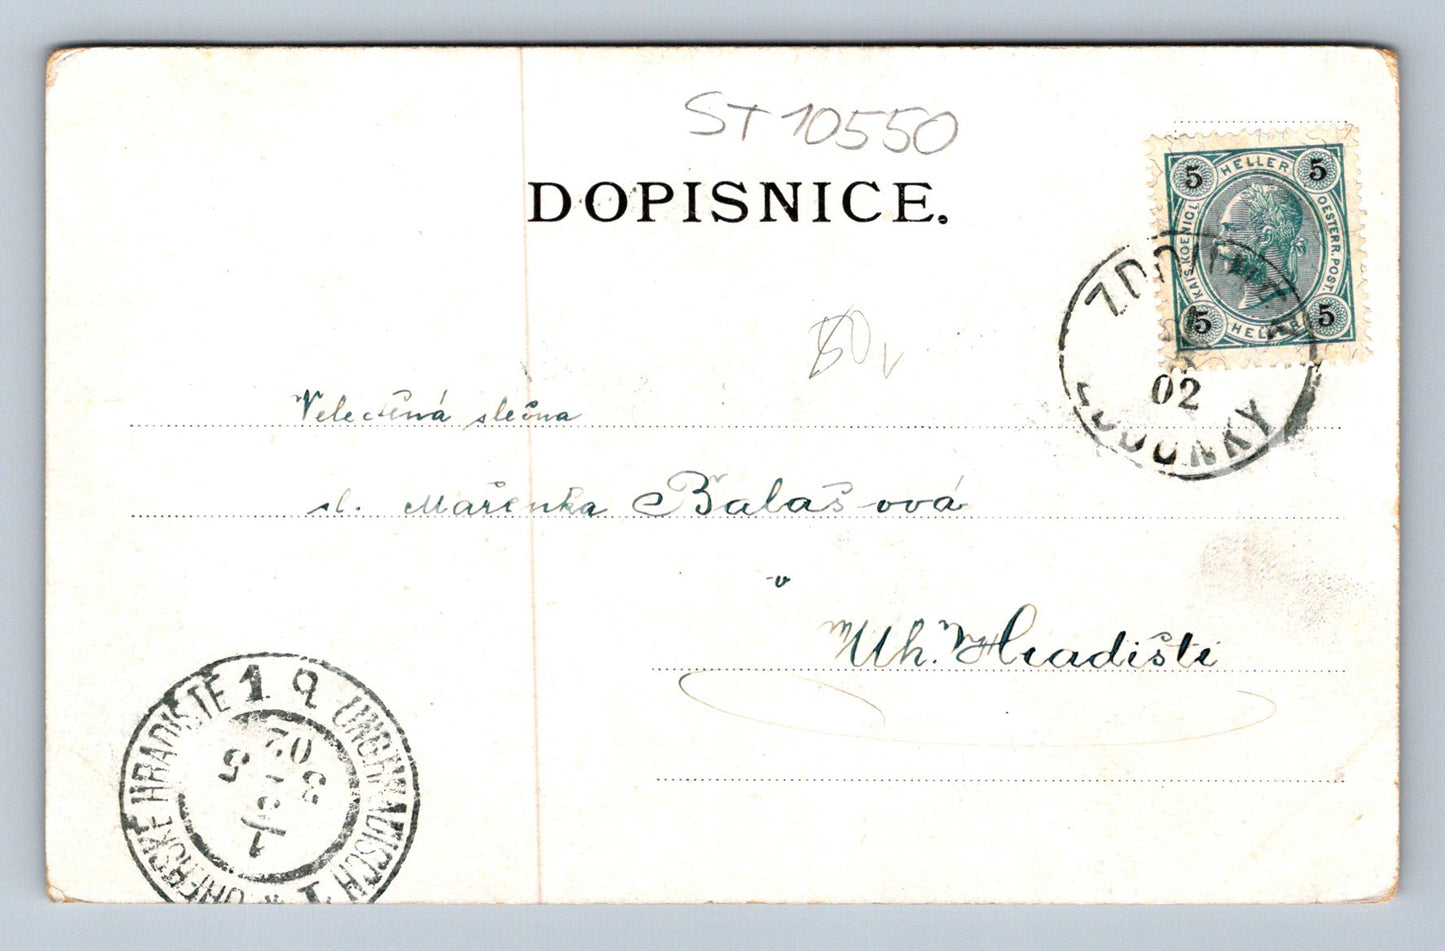 ST 10550
DOPISNICE.
5 HELLER 5
KAIS. KOENIGL. OESTERR. POST.
5 HELLER 5
02
ZDOUNKY
Velectěná slečna
sl. Mařenka Balašová
v
Uh. Hradišti
UHERSKÉ HRADIŠTĚ 1 UNGAR. HRADISCH 1
02